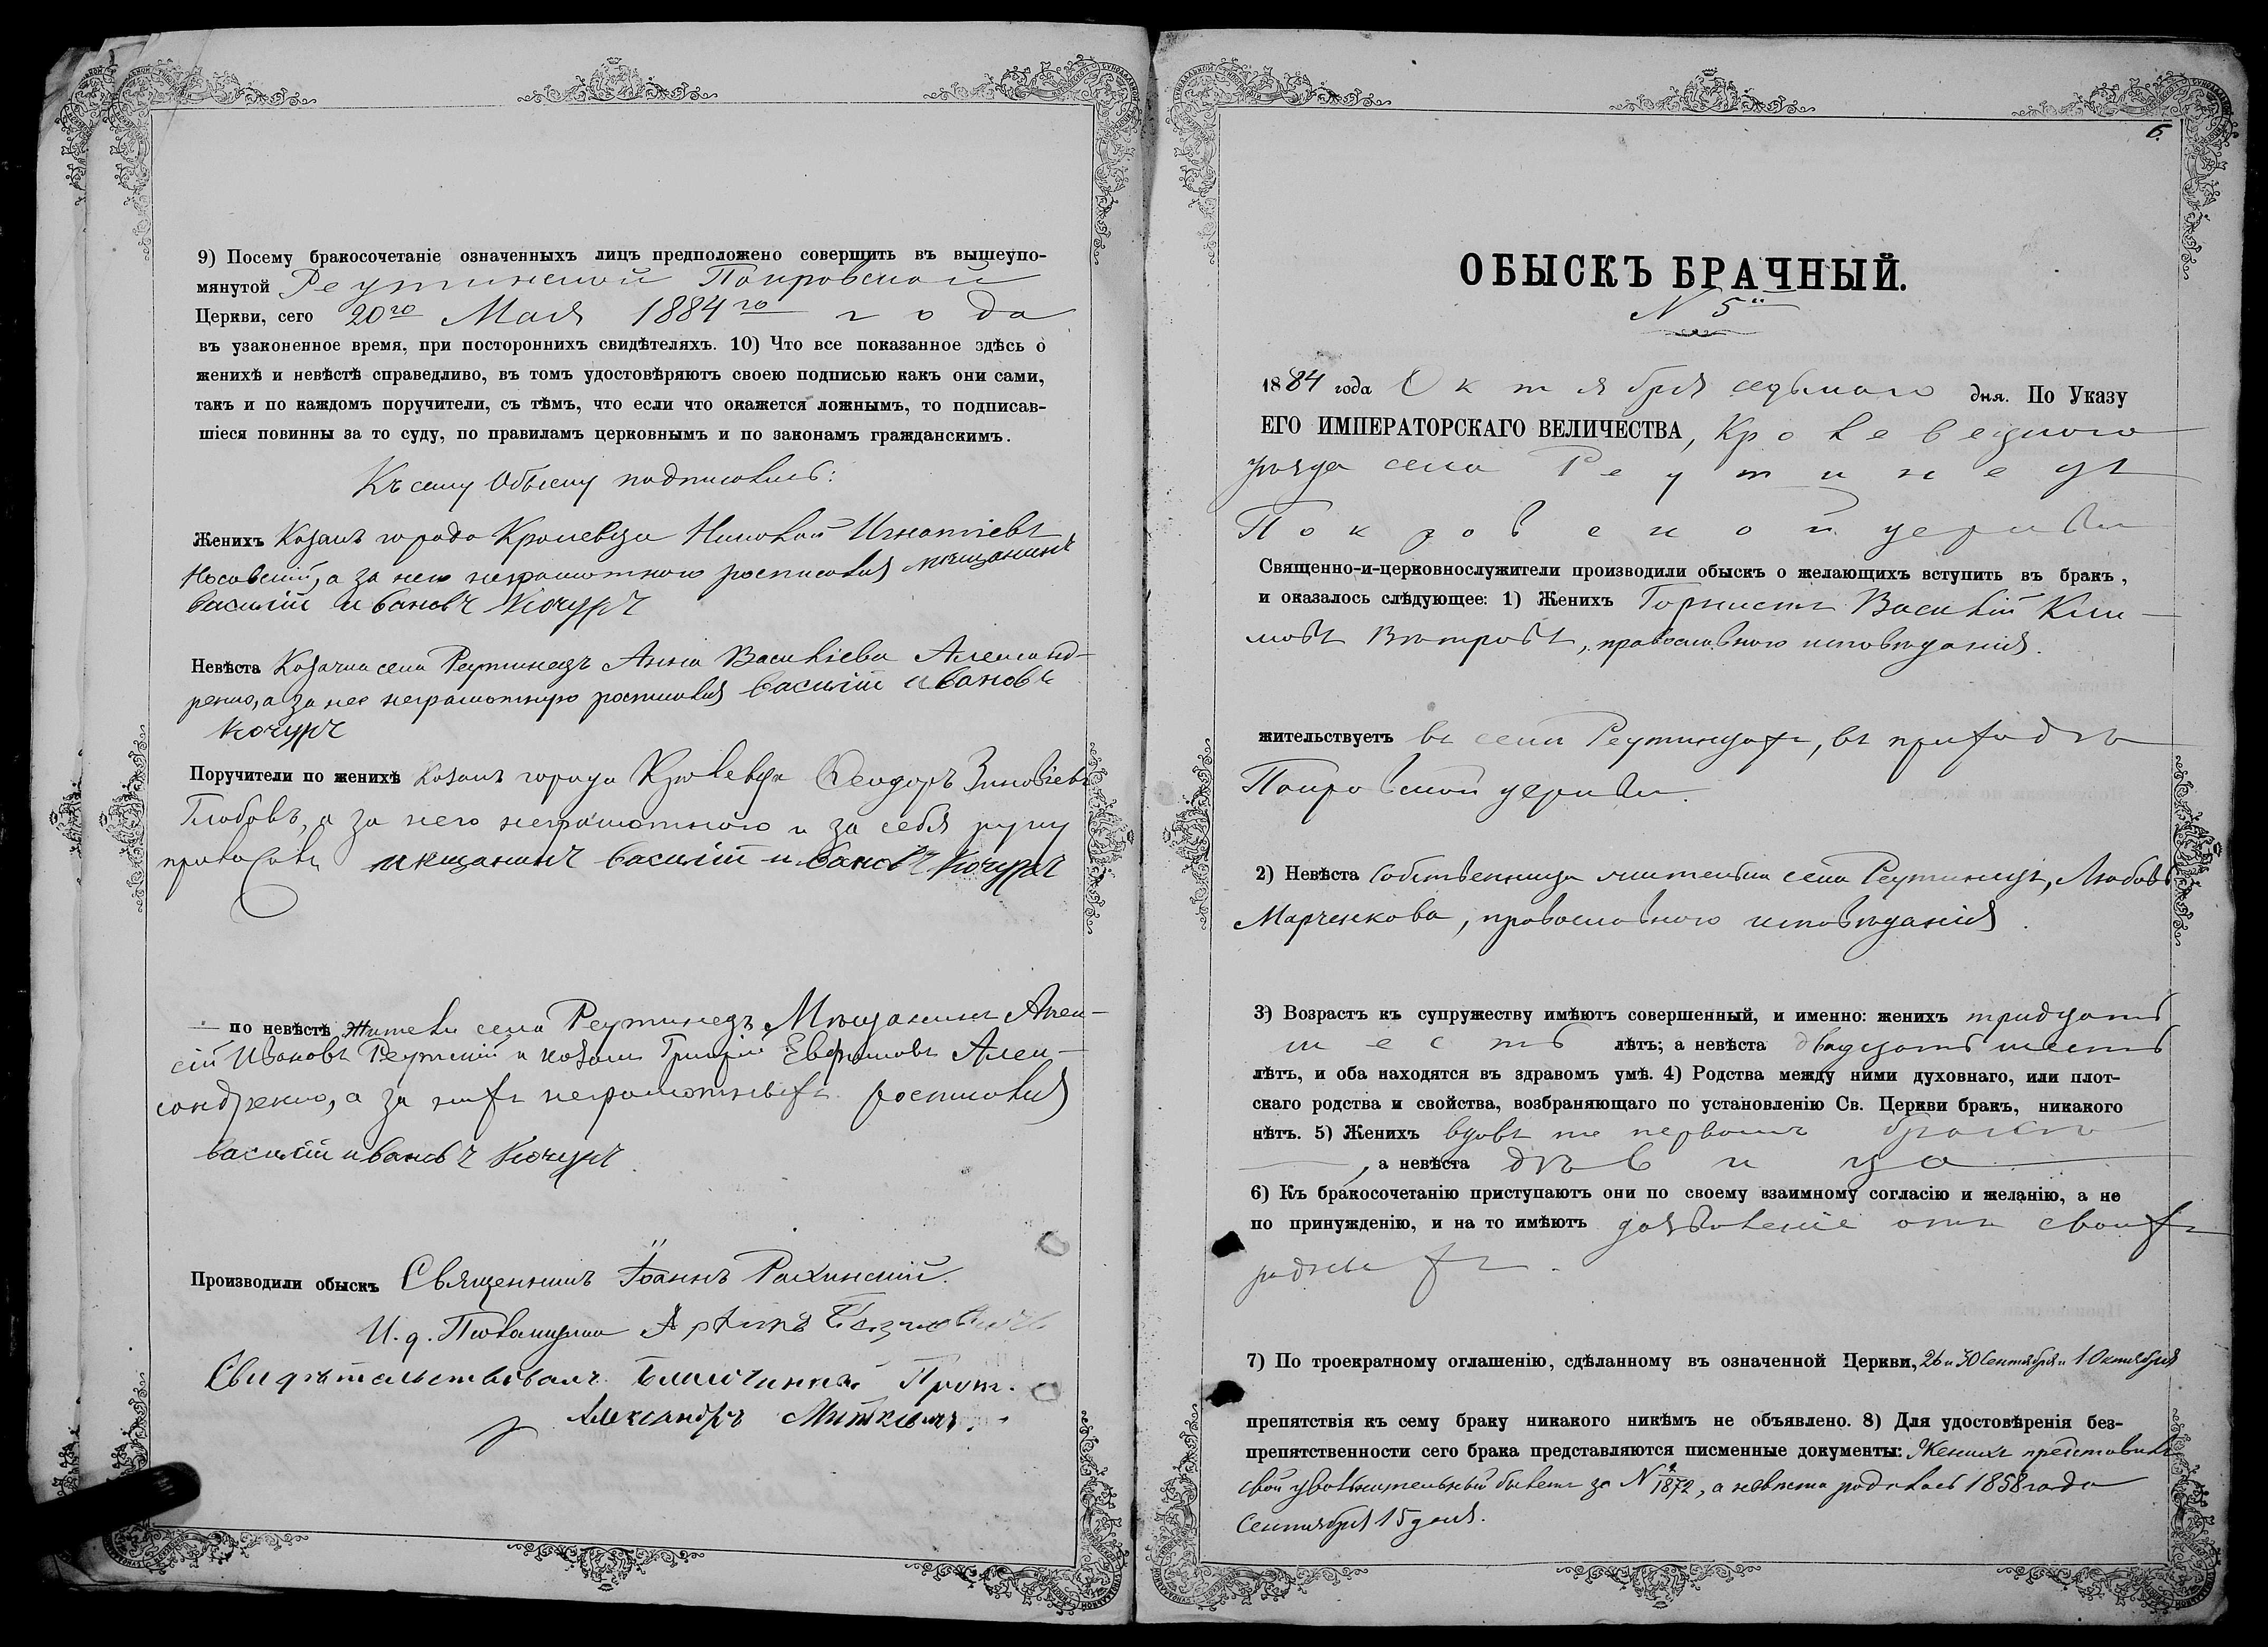 9) Посему бракосочетаніе означенныхъ лицъ предположено совершить въ вышеупо-
мянутой Реутинской Покровской
Церкви, сего 20го Мая 1884го года
въ узаконенное время, при постороннихъ свидѣтеляхъ. 10) Что все показанное здѣсь о
женихѣ и невѣстѣ справедливо, въ томъ удостовѣряютъ своею подписью какъ они сами,
такъ и по каждомъ поручители, съ тѣмъ, что если что окажется ложнымъ, то подписав-
шіеся повинны за то суду, по правиламъ церковнымъ и по законамъ гражданскимъ.
Къ сему Обыску подписались:
Женихъ Козакъ города Кролевца Николай Игнатіевъ
Носовскій, а за него неграмотного росписался мѣщанинъ
василій ивановъ Кочура
Невѣста Козачка села Реутинецъ Анна Василіева Александ-
ренко, а за нее неграмотную росписался василій ивановъ
Кочура
Поручители по женихѣ Козакъ города Кролевца Феодоръ Зиновіевъ
а за него неграмотного и за себя руку
приложилъ мѣщанинъ василій ивановъ Кочура
— по невѣстѣ Жители села Реутинецъ Мѣщанинъ Алек-
сій Ивановъ Реутскій и козакъ Григорій Евфимовъ Алек-
сандренко, а за нихъ неграмотныхъ росписался
василій ивановъ Кочура
Производили обыскъ Священникъ Іоаннъ Рахинскій.
И. д. Псаломщика
Свидѣтельствовалъ Благочинный Прот.
Александръ Миткевичъ.
6.
ОБЫСКЪ БРАЧНЫЙ.
N 5
1884 года Октября седьмого дня. По Указу
ЕГО ИМПЕРАТОРСКАГО ВЕЛИЧЕСТВА, Кролевецкого
уѣзда села Реутинецъ
Покровской церкви
Священно-и-церковнослужители производили обыскъ о желающихъ вступить въ бракъ,
и оказалось слѣдующее: 1) Женихъ Горнистъ Василій Кли-
мовъ Вѣтровъ, православного исповѣданія.
жительствуетъ въ селѣ Реутинцахъ, въ приходѣ
Покровской церкви.
2) Невѣста Собственница жителька села Реутинецъ, Любовь
Марченкова, православного исповѣданія.
3) Возрастъ къ супружеству имѣютъ совершенный, и именно: женихъ тридцать
шесть лѣтъ; а невѣста двадцать шесть
лѣтъ, и оба находятся въ здравомъ умѣ. 4) Родства между ними духовнаго, или плот-
скаго родства и свойства, возбраняющаго по установленію Св. Церкви бракъ, никакого
нѣтъ. 5) Женихъ вдовъ по первомъ бракѣ
, а невѣста дѣвица
6) Къ бракосочетанію приступаютъ они по своему взаимному согласію и желанію, а не
по принужденію, и на то имѣютъ дозволеніе отъ своихъ
родныхъ.
7) По троекратному оглашенію, сдѣланному въ означенной Церкви, 26 и 30 Сентября и 1 Октября
препятствія къ сему браку никакого никѣмъ не объявлено. 8) Для удостовѣренія без-
препятственности сего брака представляются писменные документы: Женихъ представилъ
свой увольнительный билетъ за N 1872, а невѣста родилась 1858 года
Сентября 15 дня.